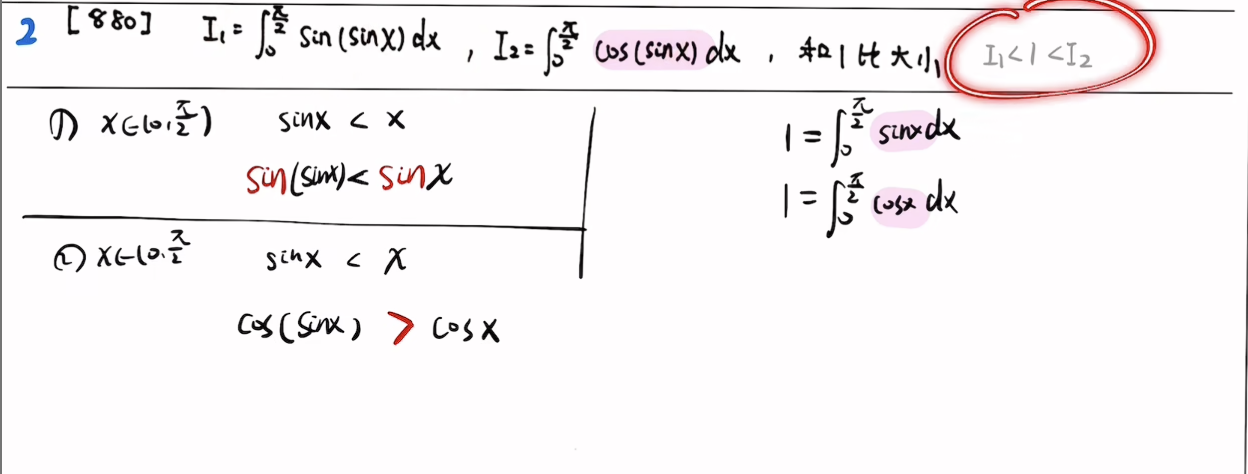 2 [880] I₁ = ∫₀^{π/2} sin(sinx) dx , I₂ = ∫₀^{π/2} cos(sinx) dx , 和1比大小 I₁<1<I₂
① x∈(0,π/2) sinx < x
sin(sinx) < sinx
② x∈(0,π/2 sinx < x
cos(sinx) > cosx
1 = ∫₀^{π/2} sinx dx
1 = ∫₀^{π/2} cosx dx